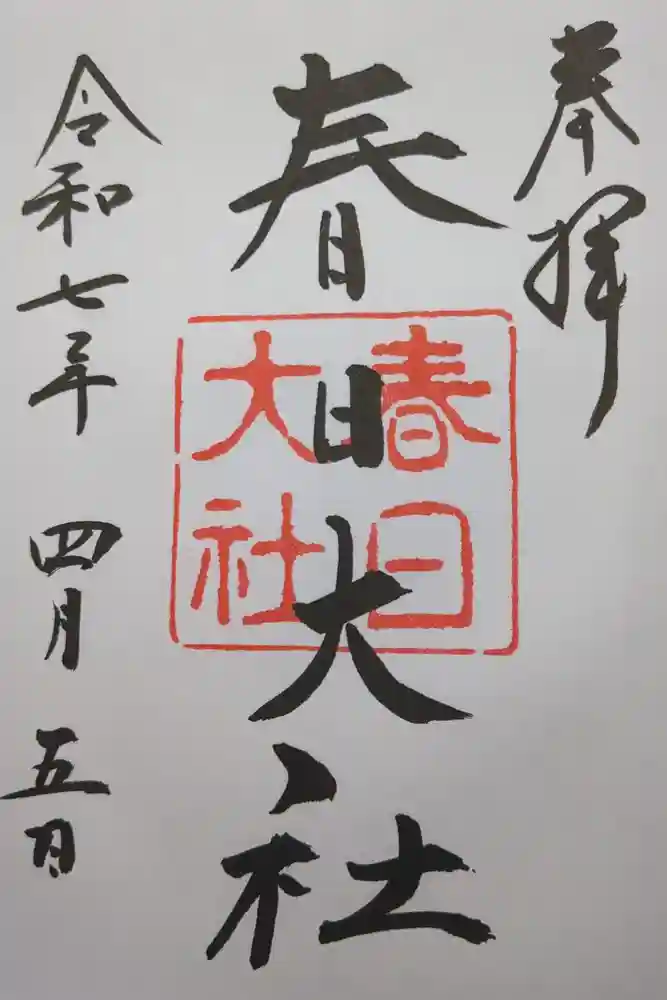 奉拝
春日大社
春日
大社
令和七年 四月 五日